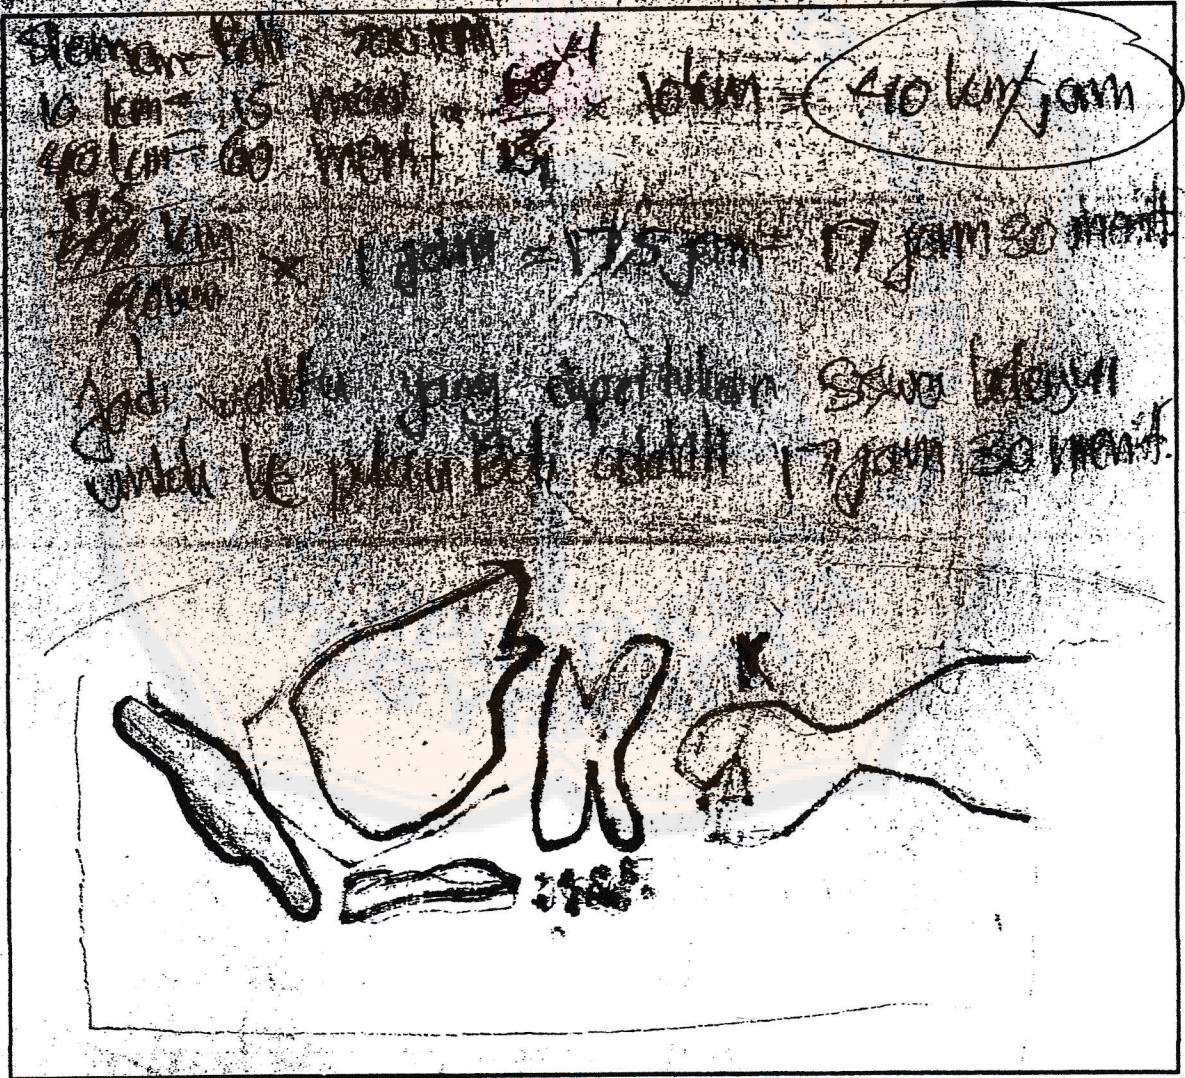 Sleman - Bali = 700 km
10 km = 15 menit = 60 × 4 / 15 × 10 km = 40 km/jam
40 km = 60 menit
17,5
km × 1 jam = 17,5 jam = 17 jam 30 menit
Jadi, waktu yang diperlukan Siswa
untuk ke pulau Bali adalah 17 jam 30 menit.